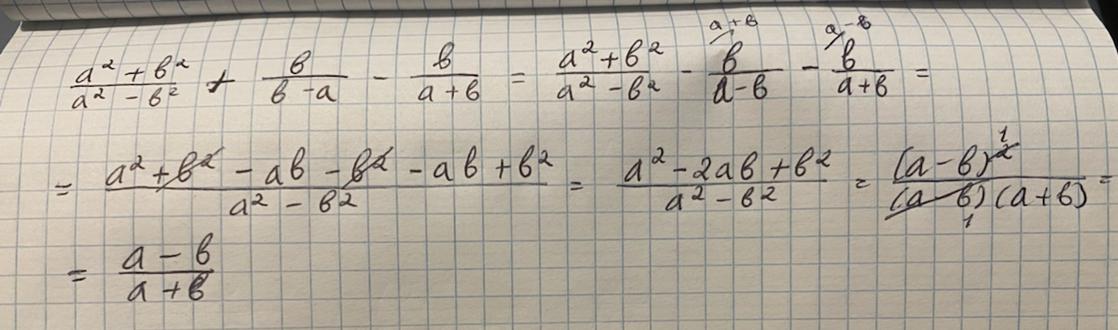 (a² + в²)/(a² - в²) + в/(в - a) - в/(a + в) = (a² + в²)/(a² - в²) - в/(a - в) ^(a + в) - в/(a + в) ^(a - в) =
= (a² + в² - aв - в² - aв + в²)/(a² - в²) = (a² - 2aв + в²)/(a² - в²) = (a - в)²^1/((a - в)_1 (a + в)) =
= (a - в)/(a + в)